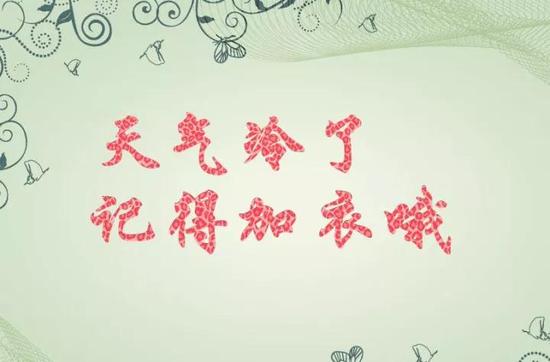 天气冷了
记得加衣哦